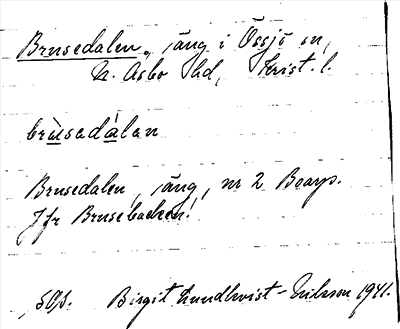 Brusedalen, äng i Össjö sn,
N. Åsbo hd, Krist. l.
brùsadàlan
Brusedalen, äng, nr 2 Boarp.
Jfr Brusebacken!
SOp. Birgit Lundkvist-Nilsson 1941.